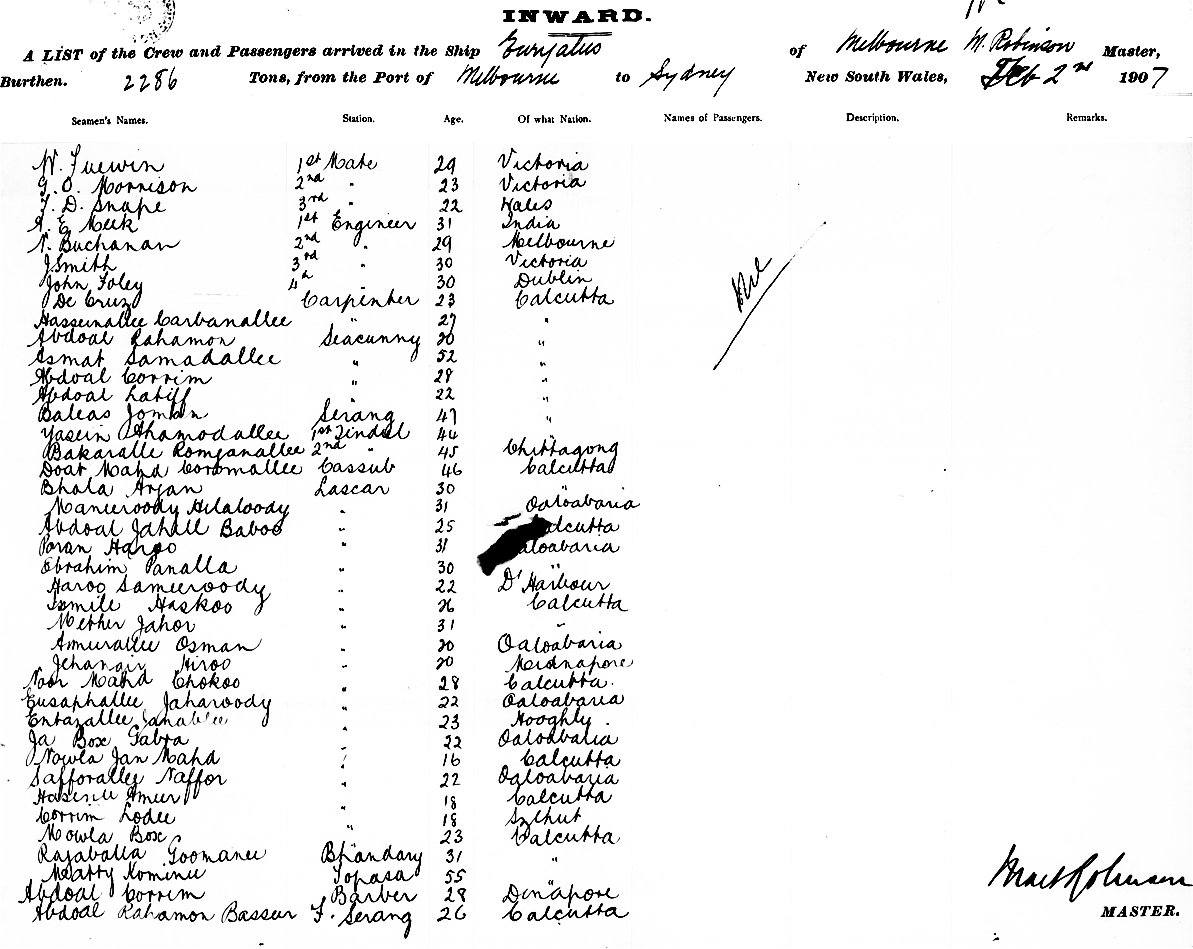 INWARD.
A LIST of the Crew and Passengers arrived in the Ship Euryalus of Melbourne M. Robinson Master,
Burthen. 2286 Tons, from the Port of Melbourne to Sydney New South Wales, Feb 2nd 1907
Seamen's Names. Station. Age. Of what Nation. Names of Passengers. Description. Remarks.
1st Mate 29 Victoria
G. O. Morrison 2nd " 23 Victoria
F. D. Snape 3rd " 22 Wales
A. E. Meek 1st Engineer 31 India
N. Buchanan 2nd " 29 Melbourne
J Smith 3rd " 30 Victoria
John Foley 4th " 30 Dublin
De Cruz Carpenter 23 Calcutta
Nil
Hasseinallee Carbanallee " 27 "
Abdoal Rahamon Seacunny 30 "
Asmat Samadallee " 52 "
Abdoal Corrim " 28 "
Abdoal Latiff " 22 "
Baleas Serang 47 "
Yasein Ahamodallee 1st Tindal 44
Bakaralle Romjanallee 2nd " 45 Chittagong
Doat Mahd Coromallee Cassub 46 Calcutta
Bhola Arjan Lascar 30 "
Manieroody Hilaloody " 31 Oaloabaria
Abdoal Jahall Baboo " 25 Calcutta
Poran Haroo " 31 Oaloabaria
Ebrahim Panalla " 30 "
Haroo Sameeroody " 22 D'Harbour
Ismile Haskoo " 26 Calcutta
Mether Jahor " 31 "
Amurallee Osman " 20 Oaloabaria
Jehangir Hiroo " 20 Midnapore
Noor Mahd Chokoo " 28 Calcutta.
Eusaphallee Jaharoody " 22 Oaloabaria
Entazallee " 23 Hooghly.
Ja Box Gabra " 22 Oaloabaria
Nowla Jan Mahd " 16 Calcutta
Safforallee Naffor " 22 Oaloabaria
Ameer " 18 Calcutta
Corrim Lodee " 18 Sylhut
Mowla Box " 23 Calcutta
Rajaballa Goomanee Bhandary 31 "
Matty Kominee Topasa 55 "
Abdoal Corrim Barber 28 Dinapore
Abdoal Rahamon Basseer F. Serang 26 Calcutta
Mart Robinson
MASTER.